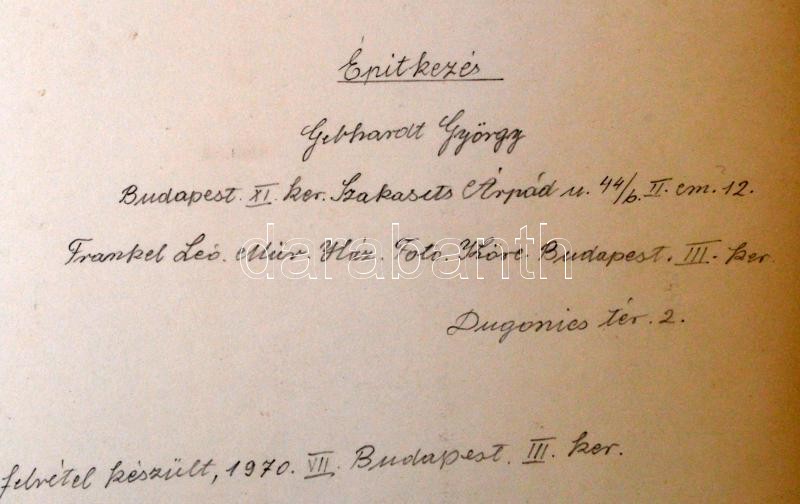 Épitkezés
Gebhardt György
Budapest. XI. ker. Szakasits Árpád u. 44/b. II. em. 12.
Frankel Leó. Műv. Ház. Foto. Köre Budapest. III. ker.
darabanth
Dugonics tér. 2.
felvétel készült, 1970. VII. Budapest. III. ker.